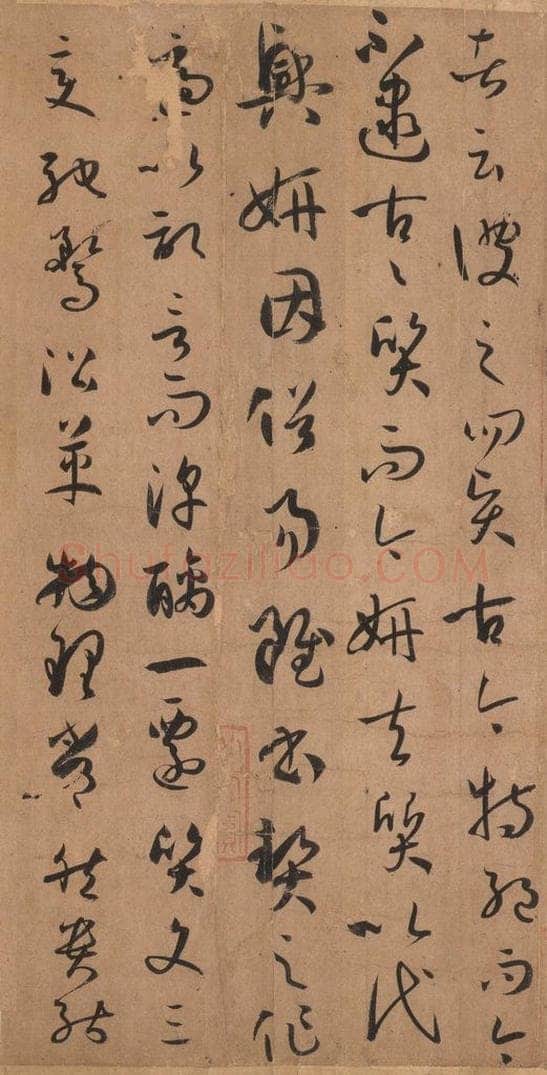 者云彼之四賢古今特絕而今
不逮古〻質而今妍夫質以代
興妍因俗易雖書契之作
適以記言而淳醨一遷質文三
變馳騖沿革物理常然貴能
Shufaziliao.COM